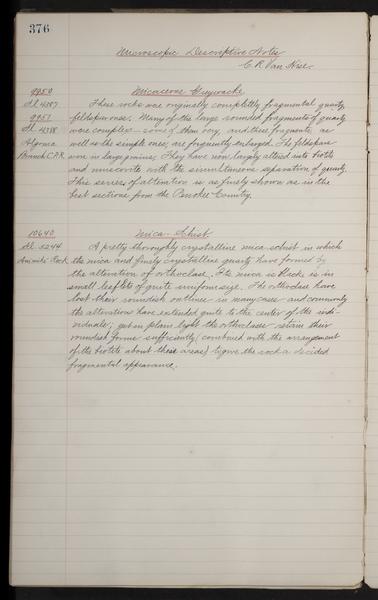 376
Microscopic Descriptive Notes
C. R. Van Hise.
9950
Sl. 4387
9951
Sl. 4388
Algoma
Branch C.P.R.
Micaceous Greywacke
These rocks were originally completely fragmental quartz,
feldspar ones. Many of the large rounded fragments of quartz
were complex - some of them very, and these fragments, as
well as the simple ones, are frequently enlarged. The feldspars
were in large grains. They have now largely altered into biotite
and muscovite with the simultaneous separation of quartz.
This series of alteration is as finely shown as in the
best sections from the Penokee Country.
10640
Sl. 5244
Animikie Rock
Mica-Schist
A pretty thoroughly crystalline mica-schist in which
the mica and finely crystalline quartz have formed by
the alteration of orthoclase. The mica is & is in
small leaflets of quite uniform size. The orthoclase have
lost their roundish outlines in many cases and commonly
the alterations have extended quite to the center of the indi-
viduals; yet in plain light the orthoclases retain their
roundish forms sufficiently (combined with the arrangement
of the biotite about these areas) to give the rock a decided
fragmental appearance.